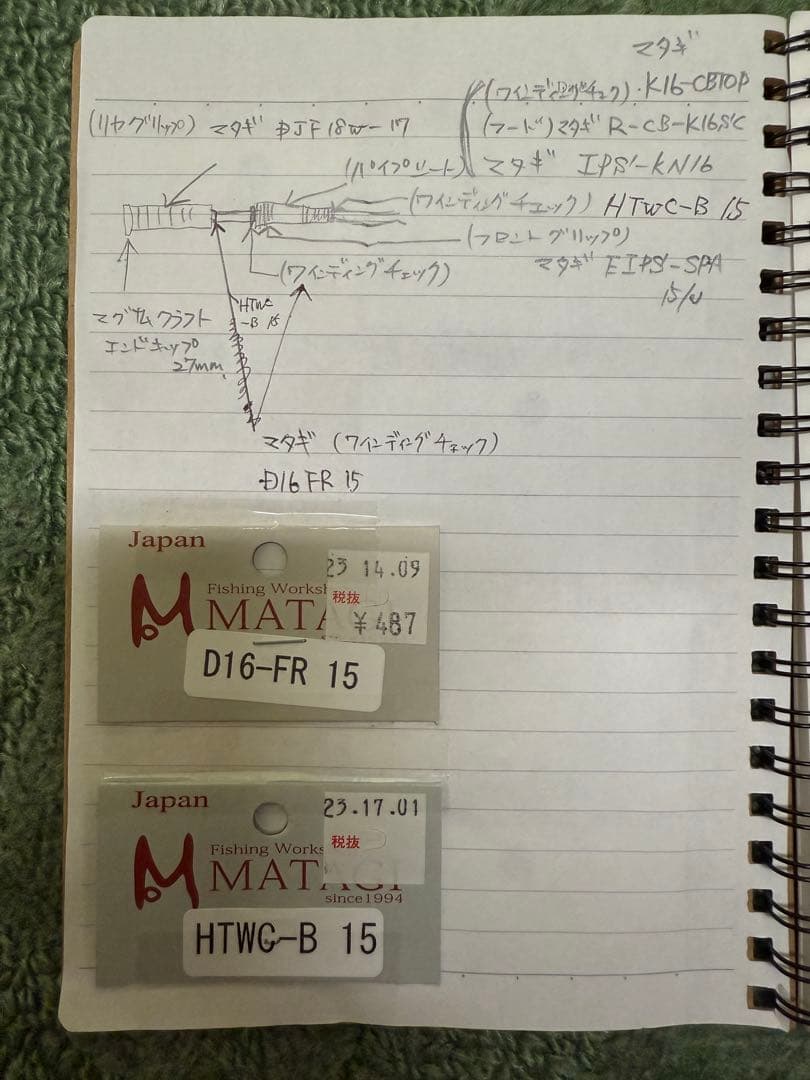 マタギ
(ワインディングチェク)・K16-CBTOP
(リヤグリップ) マタギ DJF18W-17
(フード)マタギ R-CB-K16S'C
(パイプシート) マタギ IPS'-KN16
(ワインディングチェック) HTWC-B 15
(フロントグリップ)
マタギ EIPS'-SPA
15/
(ワインディングチェック)
HTWC
-B 15
マグナムクラフト
エンドキャップ
27mm
マタギ (ワインディングチェック)
D16 FR 15
Japan
23 14.09
Fishing Works
税抜
MATA
¥487
D16-FR 15
Japan
23.17.01
税抜
Fishing Works
MATAGI
since1994
HTWC-B 15